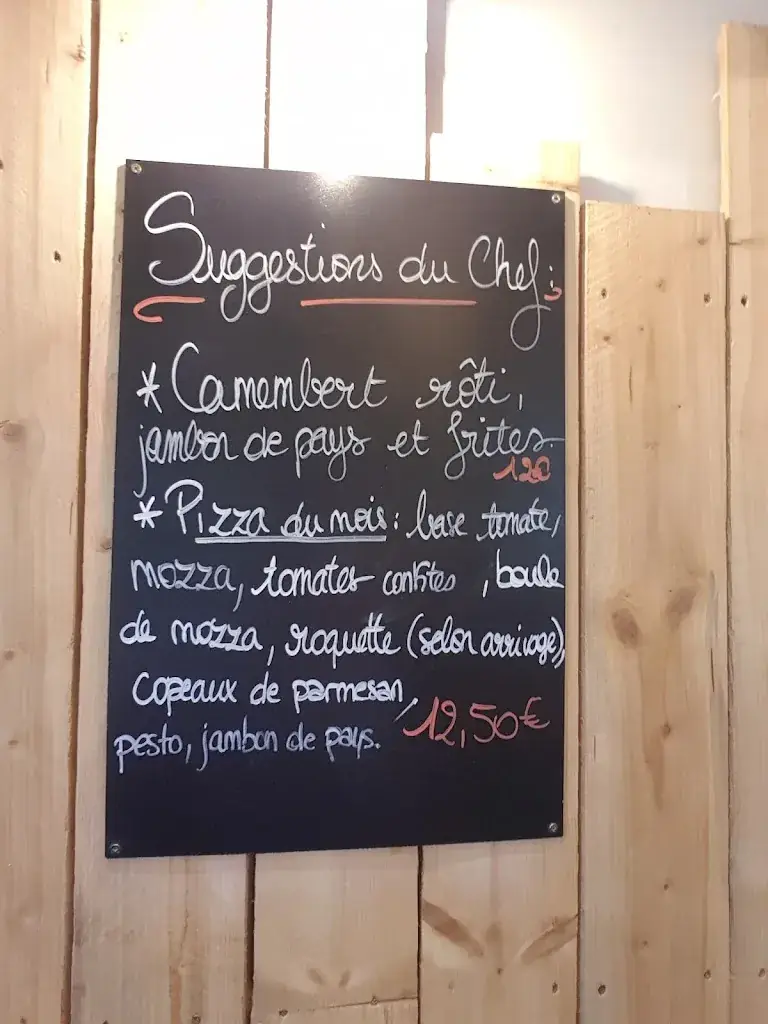 Suggestions du Chef :
* Camembert rôti,
jambon de pays et frites.
12€
* Pizza du mois : base tomate,
mozza, tomates confites, boule
de mozza, roquette (selon arrivage),
copeaux de parmesan,
pesto, jambon de pays. 12,50€